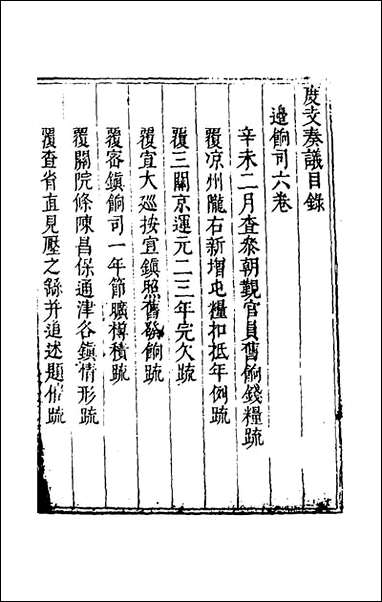 度支奏議目錄
邊餉司六卷
辛未二月查叅朝覲官員舊餉錢糧疏
覆凉州隴右新增屯糧扣抵年例疏
覆三關京運元二三年完欠疏
覆宣大巡按宣鎮照舊發餉疏
覆密鎮餉司一年節曠樽積疏
覆關院條陳昌保通津各鎮情形疏
覆查省直見壓之餘并追述題借疏